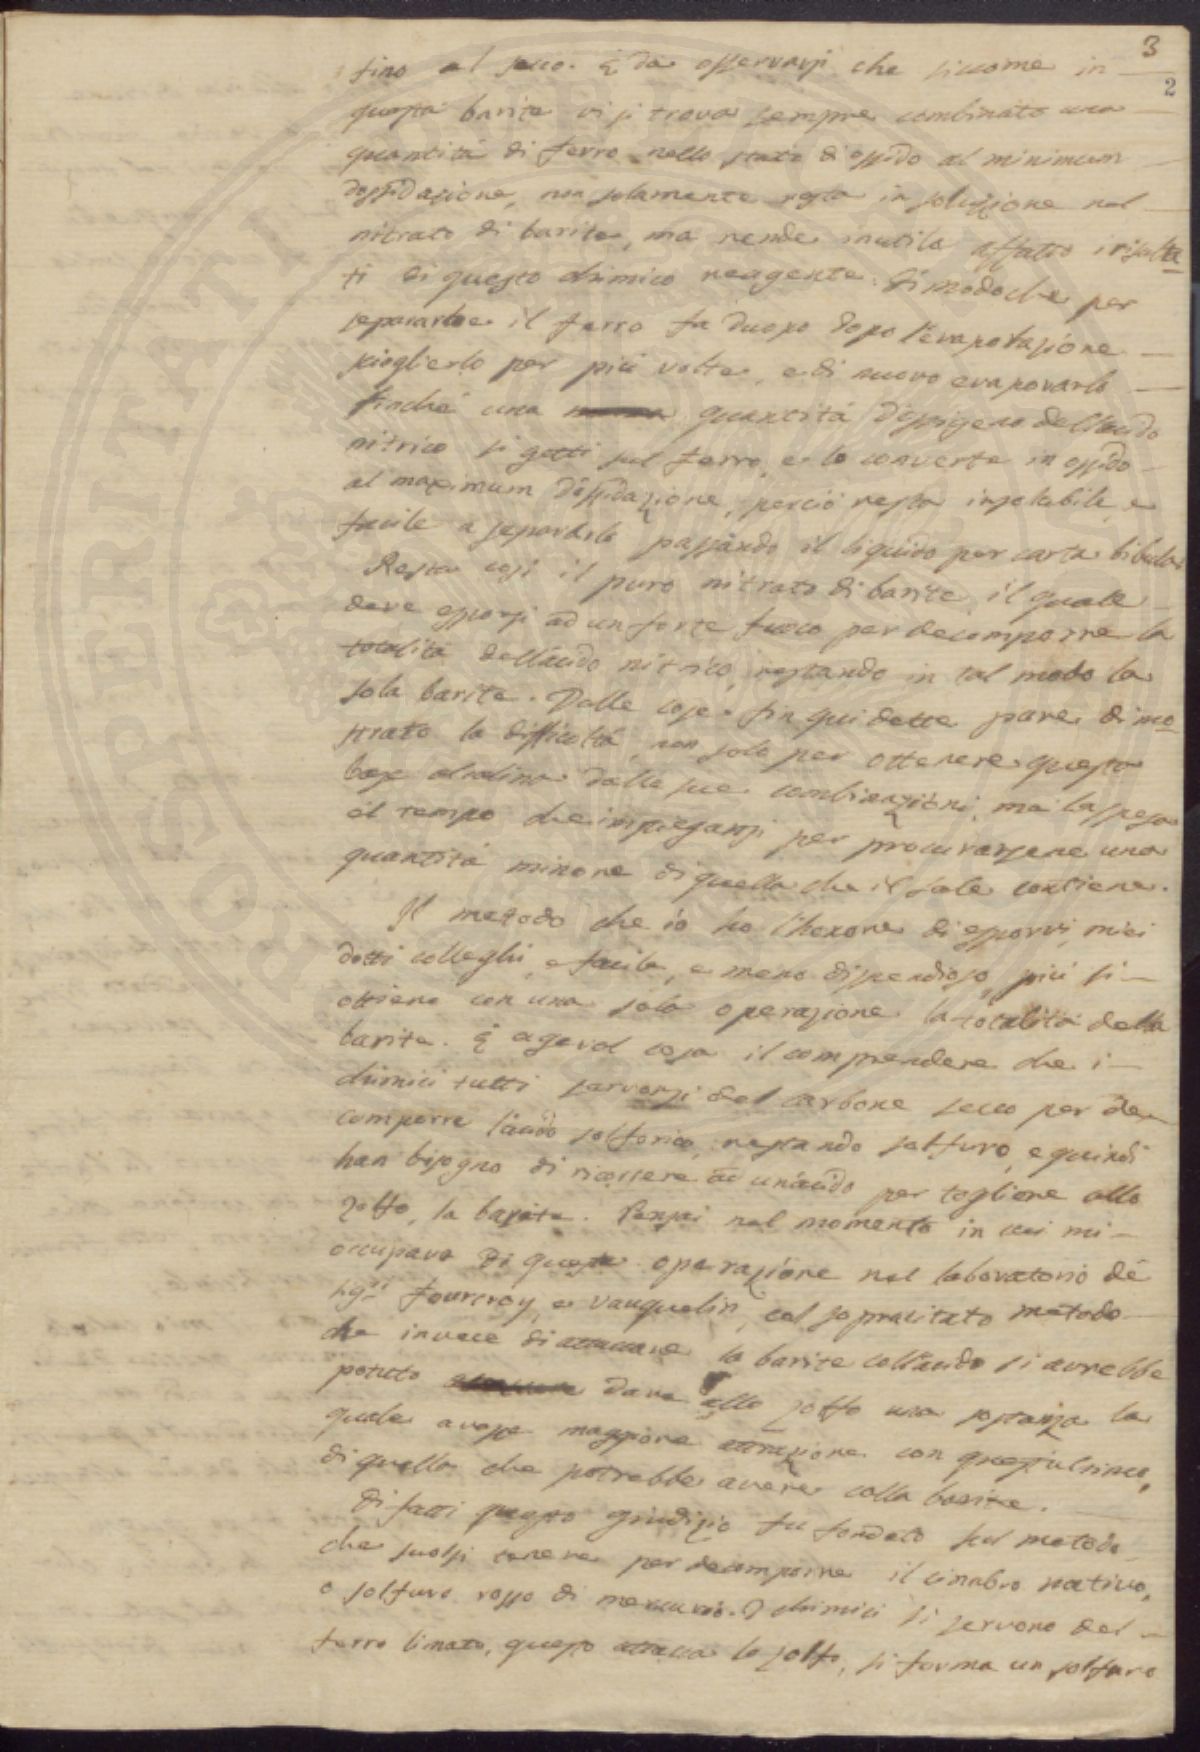 3
2
fino al secco. È da osservarsi che siccome in
questa barite vi si trova sempre combinato una
quantità di ferro nello stato d'ossido al minimum
d'ossidazione, non solamente resta in soluzione nel
nitrato di barite, ma rende inutile affatto i risulta
ti di questo chimico reagente. Di modo che per
separarloe il ferro fa duopo dopo l'evaporazione
scioglierlo per più volte, e di nuovo evaporarlo
finché una quantità d'ossigeno dell'acido
nitrico si getti sul ferro, e lo converte in ossido
al maximum d'ossidazione, perciò resta insolubile, e
facile a separarlo passando il liquido per carta bibula
Resta così il puro nitrato di barite, il quale
deve esporsi ad un forte fuoco per decomporre la
totalità dell'acido nitrico, restando in tal modo la
sola barite. Dalle cose fin qui dette pare dimo
strato la difficoltà, non solo per ottenere questa
base alcalina dalle sue combinazioni, ma la spesa
el tempo che impiegansi per procurarsene una
quantità minore di quella che il sale contiene.
Il metodo che io ho l'honore di esporvi, miei
dotti colleghi, e facile, e meno dispendioso, più si
ottiene con una sola operazione la totalità della
barite. È agevol cosa il comprendere che i
chimici tutti servonsi del carbone secco per de
comporre l'acido solforico, restando solfuro, e quindi
han bisogno di ricorrere ad un'acido per togliere allo
zolfo, la barite. Pensai nel momento in cui mi
occupava di questa operazione nel laboratorio de'
sigri Fourcroy, e Vauquelin, col sopracitato metodo
che invece di attaccare la barite coll'acido si avrebbe
potuto dare allo zolfo una sostanza la
quale avesse maggiore attrazione con quest'ultimo,
di quella che potrebbe avere colla barite.
Di fatti questo giudizio fu fondato sul metodo
che suolsi tenere per decomporre il cinabro nativo,
o solfuro rosso di mercurio. I chimici si servono del
ferro limato, questo attacca lo zolfo, si forma un solfuro